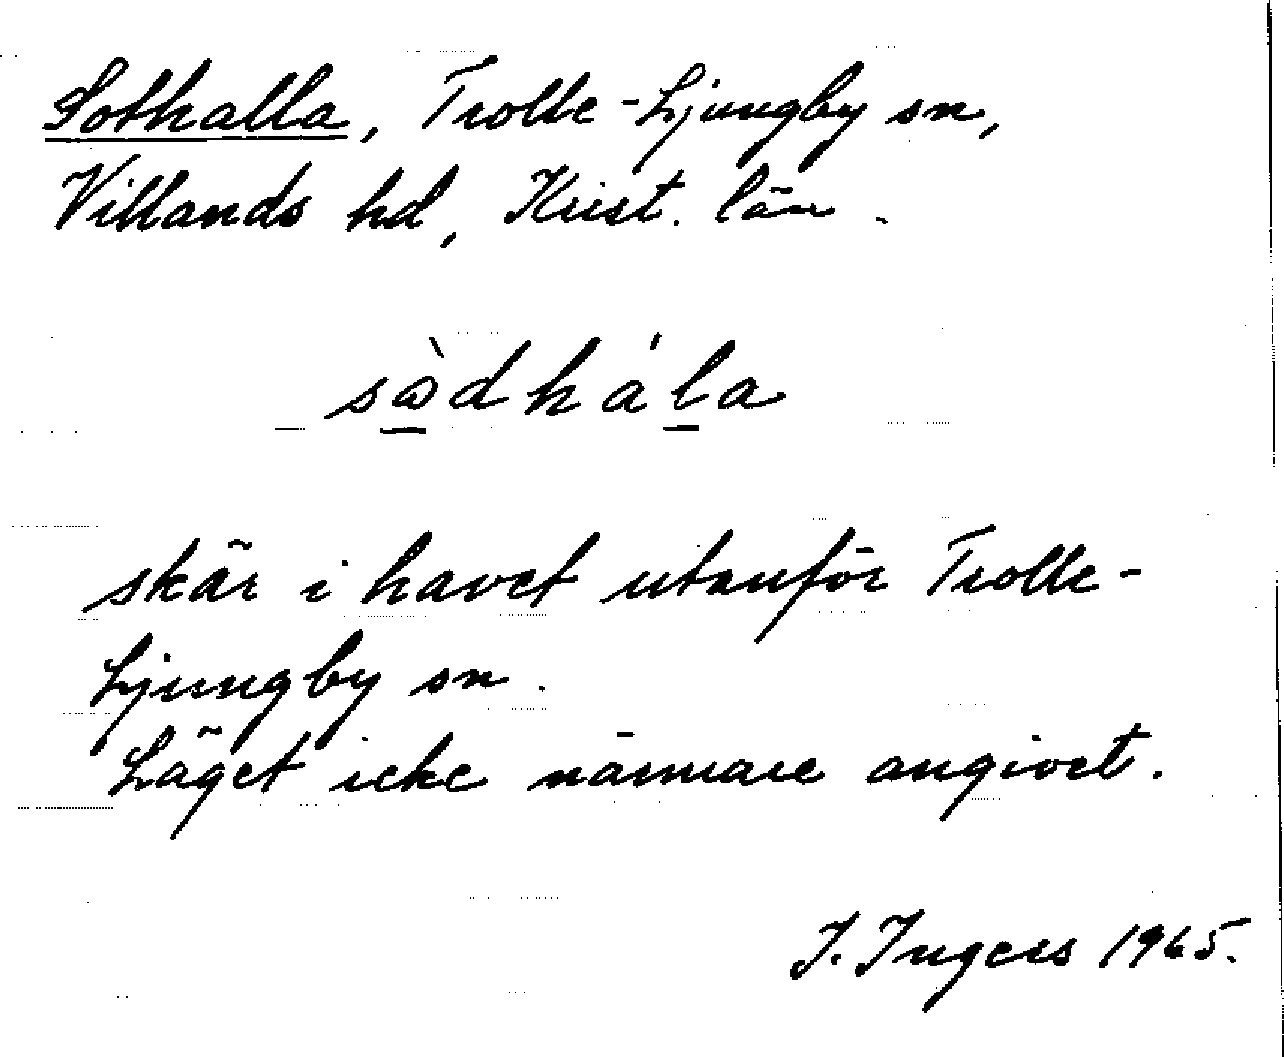 Sothalla, Trolle-Ljungby sn,
Villands hd, Krist. län.
sὼ̲dhál̲a
skär i havet utanför Trolle-
Ljungby sn.
Läget icke närmare angivet.
I. Ingers 1965.